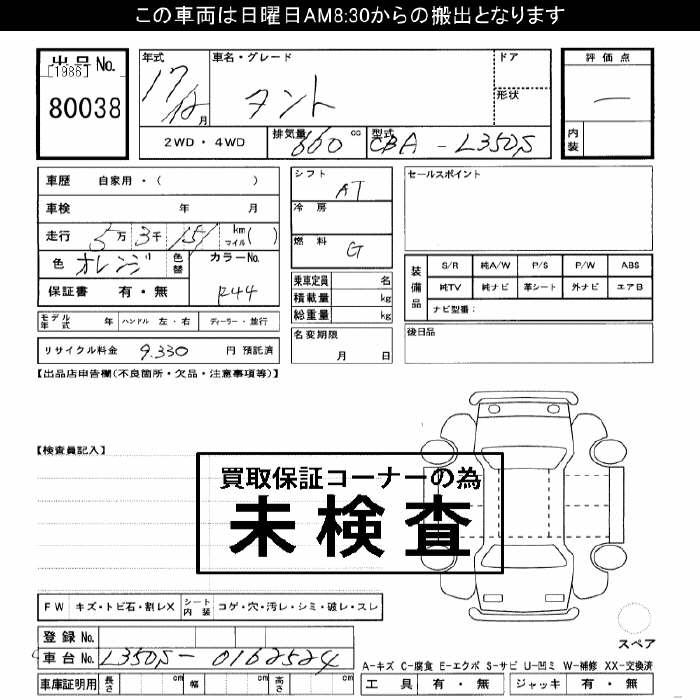 この車両は日曜日AM8:30からの搬出となります
出品No.
[1986]
80038
年式
17
12月
車名・グレード
タント
ドア
形状
評価点
一
内装
2WD・4WD
排気量 660 cc
型式 CBA - L350S
車歴 自家用・( )
車検 年 月
走行 5万 3千 151 km マイル( )
色 オレンジ 色替
カラーNo. R44
保証書 有・無
シフト AT
冷房
燃料 G
乗車定員 名
積載量 kg
総重量 kg
名変期限
月 日
セールスポイント
装備品
S/R 純A/W P/S P/W ABS
純TV 純ナビ 革シート 外ナビ エアB
ナビ型番:
後日品
モデル年式 年 ハンドル 左・右 ディーラー・並行
リサイクル料金 9.330 円 預託済
【出品店申告欄(不良箇所・欠品・注意事項等)】
【検査員記入】
買取保証コーナーの為
未検査
FW キズ・トビ石・割レX シート内装 コゲ・穴・汚レ・シミ・破レ・スレ
登録No.
車台No. L350S-0162524
車庫証明用 長さ cm 幅 cm 高さ cm
スペア
A-キズ C-腐食 E-エクボ S-サビ U-凹ミ W-補修 XX-交換済
工具 有・無 ジャッキ 有・無